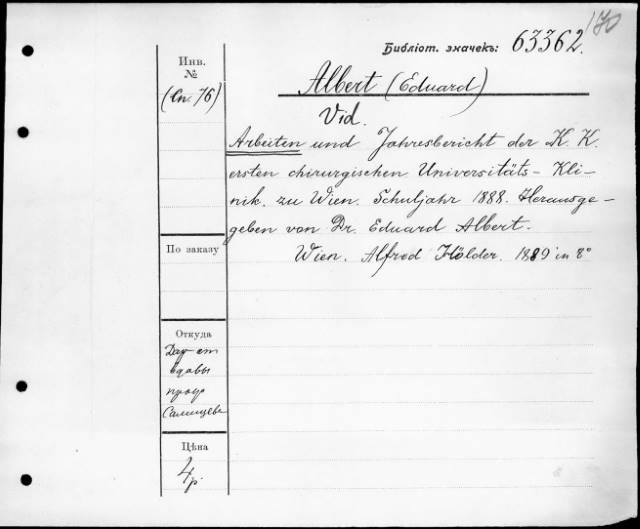 170
Библіот. значекъ: 63362.
Инв.
№
(Сп. 76)
Albert (Eduard)
Vid.
Arbeiten und Jahresbericht der K. K.
ersten chirurgischen Universitäts-Kli-
nik. zu Wien. Schuljahr 1888. Herausge-
geben von Dr. Eduard Albert.
Wien. Alfred Hölder. 1889 in 8°
По заказу
Откуда
Дар от
вдовы
проф
Салищева
Цѣна
4 р.